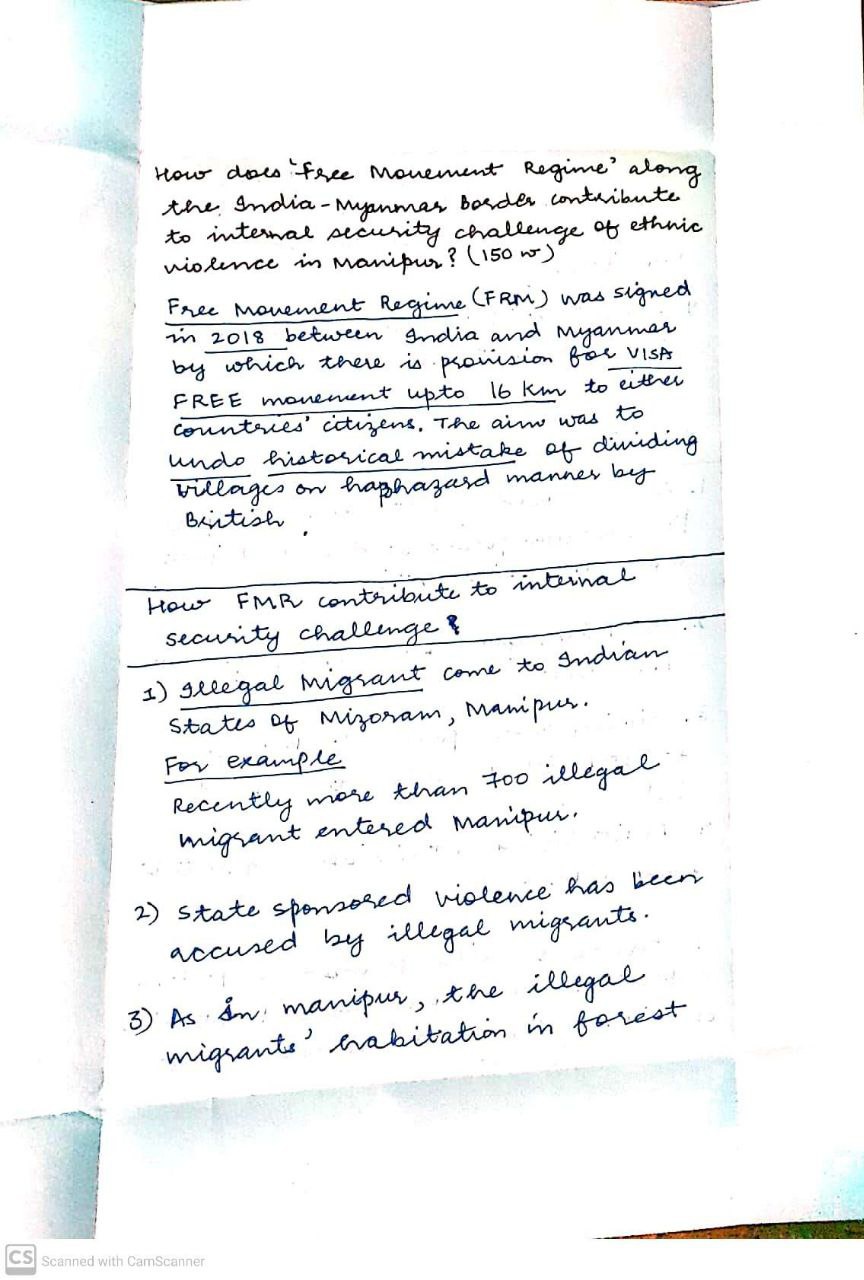 How does 'Free Movement Regime' along
the India-Myanmar Border contribute
to internal security challenge of ethnic
violence in Manipur? (150 w)
Free Movement Regime (FRM) was signed
in 2018 between India and Myanmar
by which there is provision for VISA
FREE movement upto 16 km to either
countries' citizens. The aim was to
undo historical mistake of dividing
villages on haphazard manner by
British.
How FMR contribute to internal
security challenge?
1) Illegal Migrant come to Indian
States of Mizoram, Manipur.
For example
Recently more than 700 illegal
migrant entered Manipur.
2) State sponsored violence has been
accused by illegal migrants.
3) As in manipur, the illegal
migrants' habitation in forest
CS Scanned with CamScanner